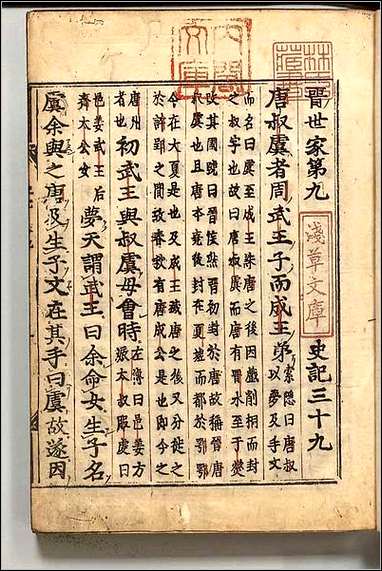 林氏藏書
內閣文庫
晉世家第九
淺草文庫
史記三十九
唐叔虞者周武王子而成王弟
索隱曰唐叔
以夢及手文
而名曰虞至成王誅唐之後因戲削桐而封
之叔字也故曰唐叔虞而唐有晉水至子燮
改其國號曰晉侯然晉初封於唐故稱晉唐
叔虞也且唐本堯後封在夏墟而都於鄂鄂
今在大夏是也及成王滅唐之後又分徙之
於許郢之間故春秋有唐成公是也即今之
唐州
者也
初武王與叔虞母會時
左傳曰邑姜方
娠太叔服虔曰
邑姜武王后
齊太公女
夢天謂武王曰余命女生子名
虞余與之唐及生子文在其手曰虞故遂因